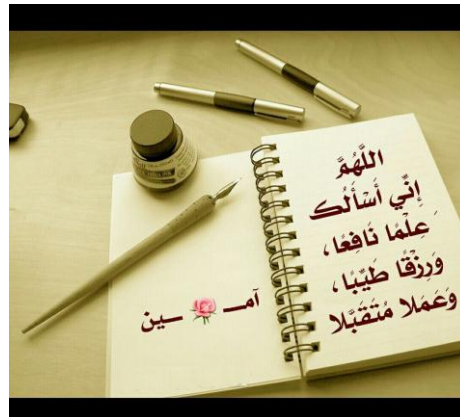 اللَّهُمَّ
إِنِّي أَسْأَلُكَ
عِلْمًا نَافِعًا،
وَرِزْقًا طَيِّبًا،
وَعَمَلا مُتَقَبَّلا
آمـــ ـــين